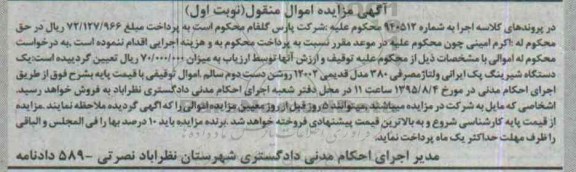 آگهی مزایده اموال منقول(نوبت اول)
در پروندهای کلاسه اجرا به شماره ۹۴۰۵۱۳ محکوم علیه :شرکت پارس گلفام محکوم است به پرداخت مبلغ ۷۲/۱۲۷/۹۶۶ ریال در حق
محکوم له :اکرم امینی چون محکوم علیه در موعد مقرر نسبت به پرداخت محکوم به و هزینه اجرایی اقدام ننموده است .به درخواست
محکوم له اموالی با مشخصات ذیل از محکوم علیه توقیف و ارزش آنها توسط ارزیاب به میزان ۷۰/۰۰۰/۰۰۰ ریال تعیین گردیده است:یک
دستگاه شیرینگ پک ایرانی ولتاژ مصرفی ۳۸۰ مدل قدیمی ۱۲۰۰۲ روشن دست دوم سالم .اموال توقیفی با قیمت پایه بشرح فوق از طریق
اجرای احکام مدنی در مورخ ۱۳۹۵/۸/۴ ساعت ۱۱ در محل دفتر شعبه اجرای احکام مدنی دادگستری نظراباد به فروش خواهد رسید.
اشخاصی که مایل به شرکت در مزایده میباشند میتوانند ۵ روز قبل از روز معین مزایده اموالی را که آگهی گردیده ملاحظه نمایند .مزایده
از قیمت پایه کارشناسی شروع و به بالاترین قیمت پیشنهادی فروخته خواهد شد. برنده مزایده باید ۱۰ درصد بها را فی المجلس و الباقی
را ظرف مهلت حداکثر یک ماه پرداخت نماید.
مدیر اجرای احکام مدنی دادگستری شهرستان نظراباد نصرتی -۵۸۹ دادنامه